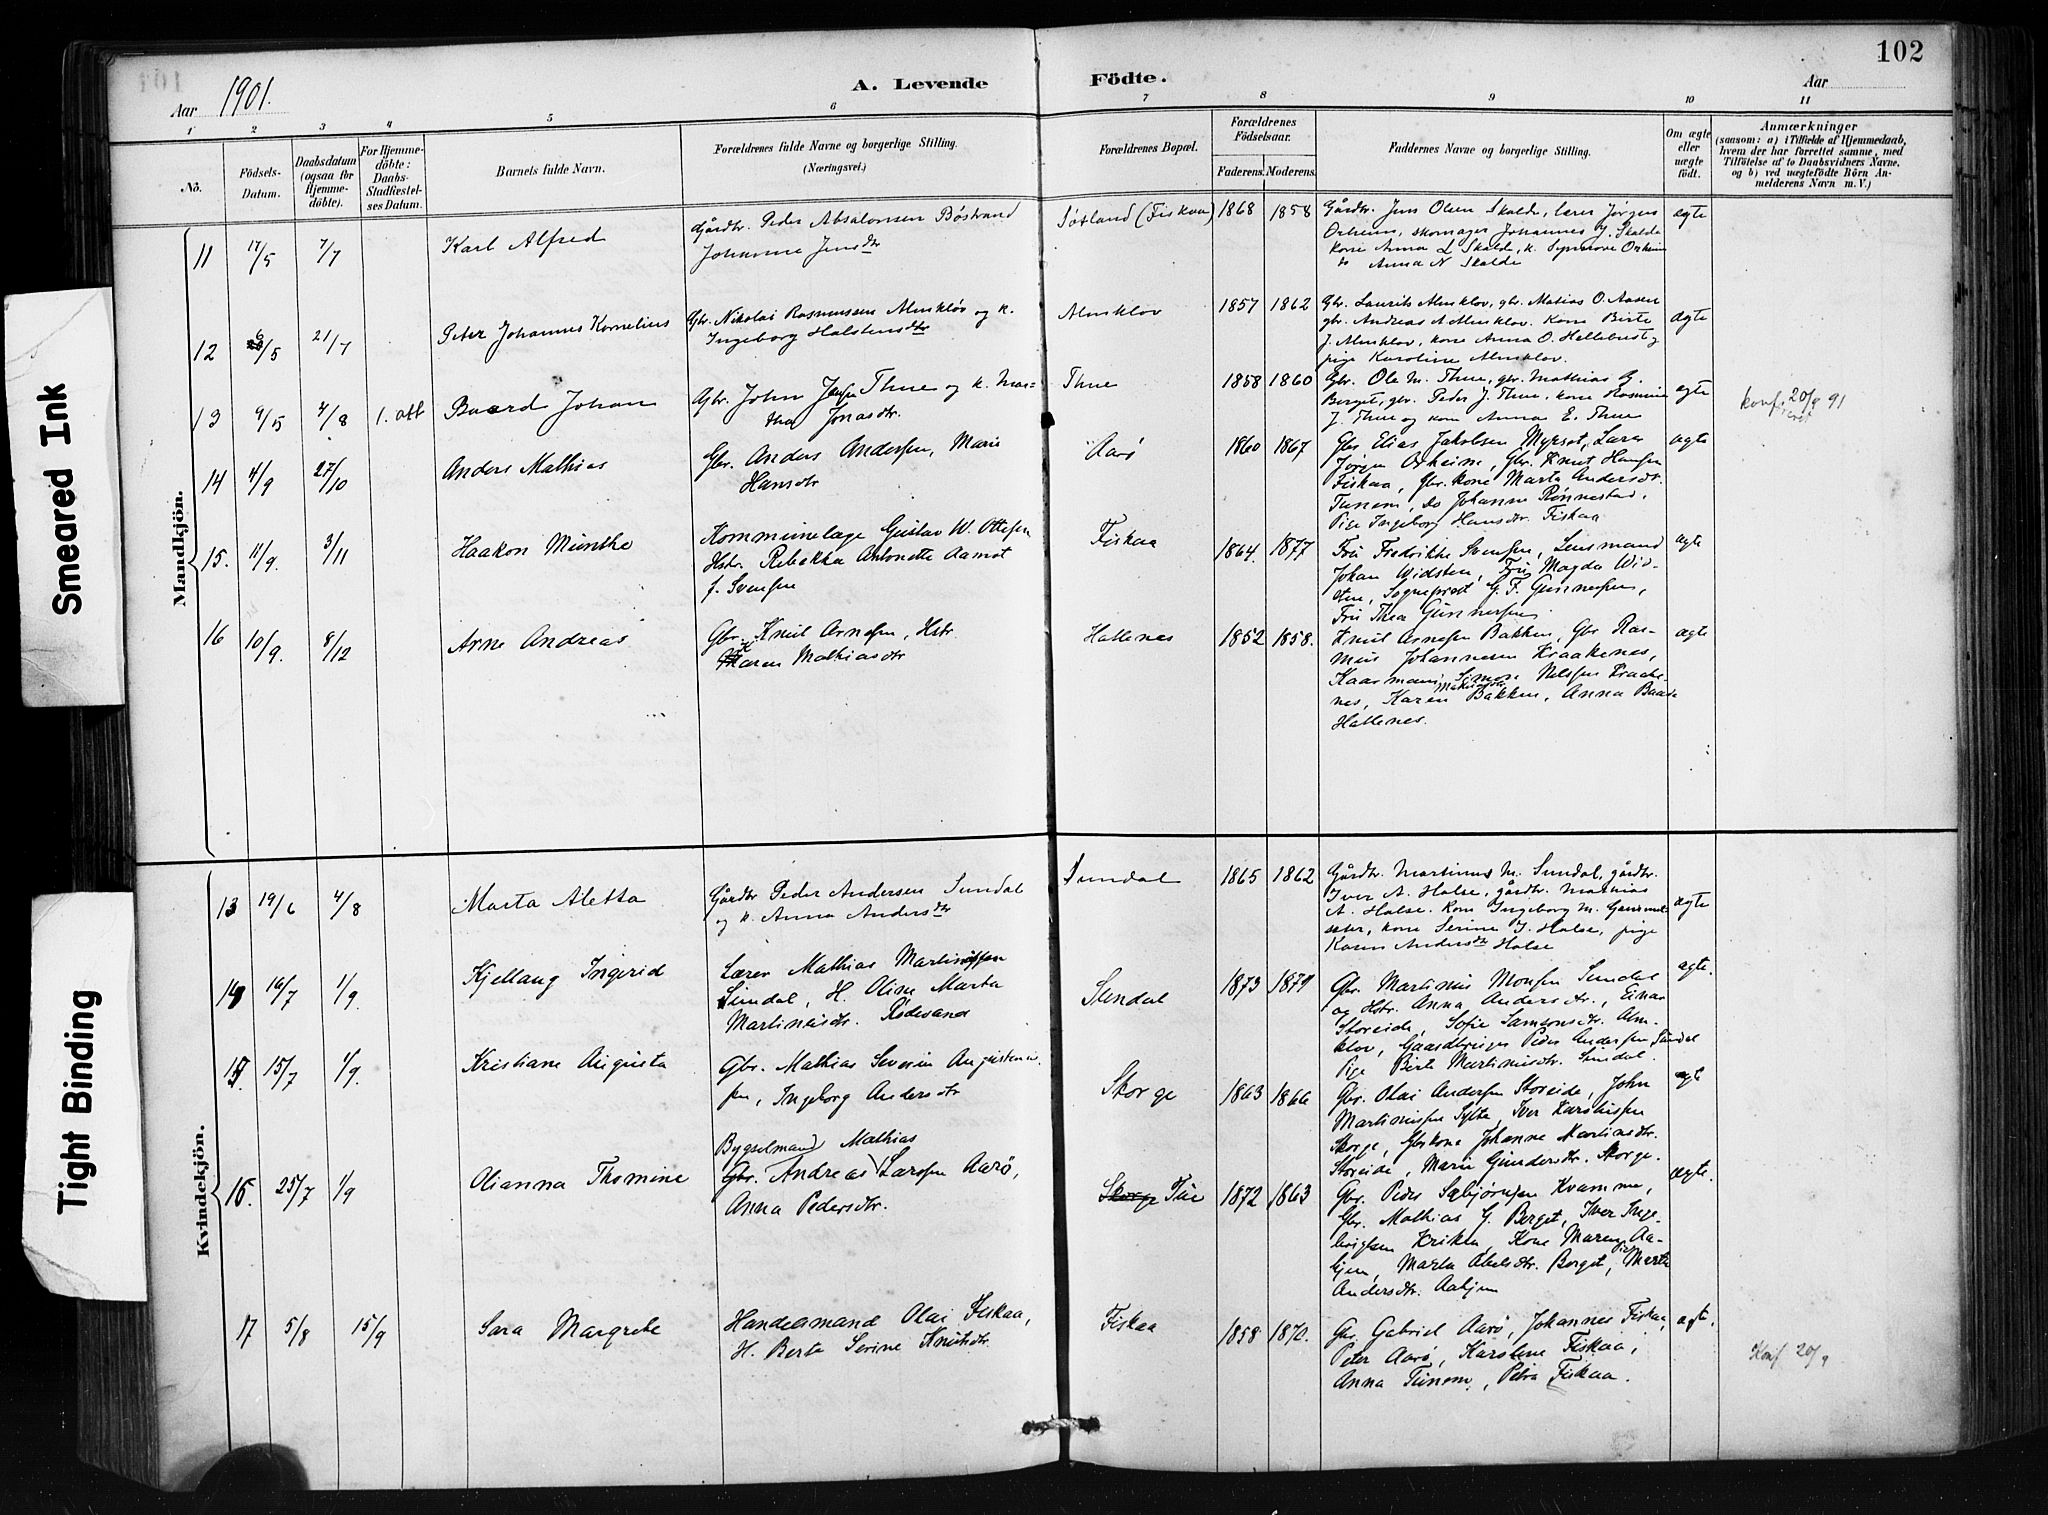 102
Aar 1901.
A. Levende Födte.
Aar
1 2 3 4 5 6 7 8 9 10 11
No.
Födsels-Datum.
Daabsdatum (ogsaa för Hjemme-döbte).
For Hjemme-döbte: Daabs-Stadfæstel-ses Datum.
Barnets fulde Navn.
Forældrenes fulde Navne og borgerlige Stilling.
(Næringsvei.)
Forældrenes Bopæl.
Forældrenes Födselsaar.
Faderens. Moderens.
Faddernes Navne og borgerlige Stilling.
Om ægte eller uægte födt.
Anmærkninger
(saasom: a) i Tilfælde af Hjemmedaab, hvem der har forrettet samme, med Tilföielse af to Daabsvidners Navne, og b) ved uægtefödte Börn An-melderens Navn m. V.)
Smeared Ink
Tight Binding
Mandkjön.
11 17/5 7/7 Karl Alfred
Gårdbr. Peder Absalonsen Böstrand
Johanne Jensdtr
Søtland (Fiskaa) 1868 1858
Gårdbr. Jens Olsen Skalde, lærer Jørgen
Orheim, skomager Johannes J. Skalde
kone Anna L Skalde, k. Synnøve Orheim
do Anna N Skalde
ægte
12 6/5 21/7 Peter Johannes Kornelius
Gbr. Nikolai Rasmussen Almkløv og k.
Ingeborg Halstensdtr
Almklov 1857 1862
Gbr. Laurits Almklov, gbr. Matias O. Aasen
gbr. Andreas A Almklov. kone Birte
J. Almklov, kone Anna O. Hellebust og
pige Karoline Almklov.
ægte
13 9/5 4/8 1. okt Baard Johan
Gbr. John Thue og k. Mar-
tha Jonasdtr.
Thue 1858 1860
Gbr. Ole M. Thue, gbr. Mathias G.
Berget, gbr. Peder J. Thue, kone Rasmine
J. Thue og kone Anna E. Thue
ægte
konf. 20/9 91
14 4/9 27/10 Anders Mathias
Gbr. Anders Andersen, Marie
Hansdtr
Aarö 1860 1867
Gbr Elias Jakobsen Myrset, Lærer
Jørgen Orheim, Gbr. Knut Hansen
Fiskaa, Gbr. kone Marta Andersdtr.
Tunem, Do Johanne Rønnestad,
Pige Ingeborg Hansdtr. Fiskaa
ægte
15. 11/9. 3/11 Haakon Munthe
Kommunelæge Gustav W. Ottesen
Hstr. Rebekka Antonette Aamot
f. Svensen
Fiskaa 1864. 1877
Fru Fredrikke Svensen, Lensmand
Johan Widsten, Fru Magda Wid-
sten, Sogneprest G. F. Gunnersen,
Fru Thea Gunnersen
ægte
16 10/9. 8/12 Arne Andreas
Gbr. Knut Arnesen, Hstr.
Karen Mathiasdtr
Hattenes 1852 1858.
Knut Arnesen Bakken, Gbr Ras-
mus Johannesen Kraakenes,
Simon Nilssen Kraake-
nes, Karen Bakken, Anna
Hattenes.
ægte
Kvindekjön.
13 19/6 4/8 Marta Aletta
Gårdbr Peder Andersen Sundal
og k. Anna Andersdtr
Sundal 1865 1862
Gårdbr. Martinus M. Sundal, gårdbr.
Iver A. Halse, gårdbr. Mathias
A. Halse. kone Ingeborg M. Gammel-
sæter, kone Serine I. Halse, pige
Karen Andersdtr Halse
ægte
14 16/7 1/9 Kjellaug Ingerid
Lærer Mathias Martinussen
Sundal, H. Oline Marta
Martinusdtr. Rødesand
Sundal 1873 1879
Gbr. Martinus Monsen Sundal
og Hstr. Anna Andersdtr., Einar
Storeide, Sofie Samsonsdtr. Alm-
klov, Gaardbruger Peder Andersen Sundal
Pige Birte Martinusdtr. Sundal.
ægte.
15. 15/7 1/9. Kristiane Augusta
Gbr. Mathias Severin Augustinu-
sen, Ingeborg Andersdtr
Skorge 1863 1866
Gbr. Olai Andersen Storeide, John
Martinussen Sylte, Iver Karstensen
Skorge, Gbrkone Johanne Martinsdtr.
Storeide, Marie Gundersdtr. Skorge.
ægte
16. 25/7 1/9 Olianna Thomine
Bygselmand Mathias
Gbr. Andreas Larssen Aarö,
Anna Pedersdtr.
Skorge Tue 1872 1863
Gbr. Peder Sæbjørnsen Kvamme,
Gbr. Mathias G. Berget, Iver Inge-
brigtsen Krikla, Kone Maren Aa-
hjem, Marta Abelsdtr. Berget, Pige Marta
Andersdtr. Aahjem
ægte.
17 5/8 15/9 Sara Margrete
Handelsmand Olai Fiskaa,
H. Berte Serine Knutsdtr.
Fiskaa 1858 1870.
Gbr Gabriel Aarö, Johannes Fiskaa,
Peter Aarö, Karoline Fiskaa,
Anna Tunem, Petra Fiskaa.
ægte.
Konf 20/9